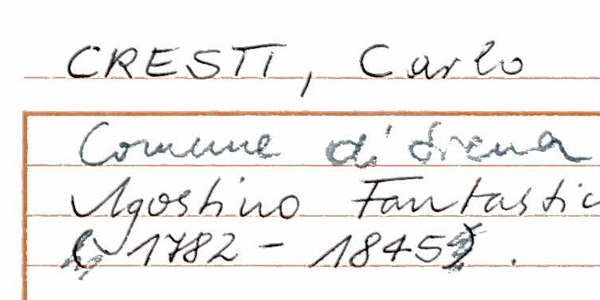 CRESTI, Carlo
Comune di Siena
Agostino Fantastic
(1782 - 1845).